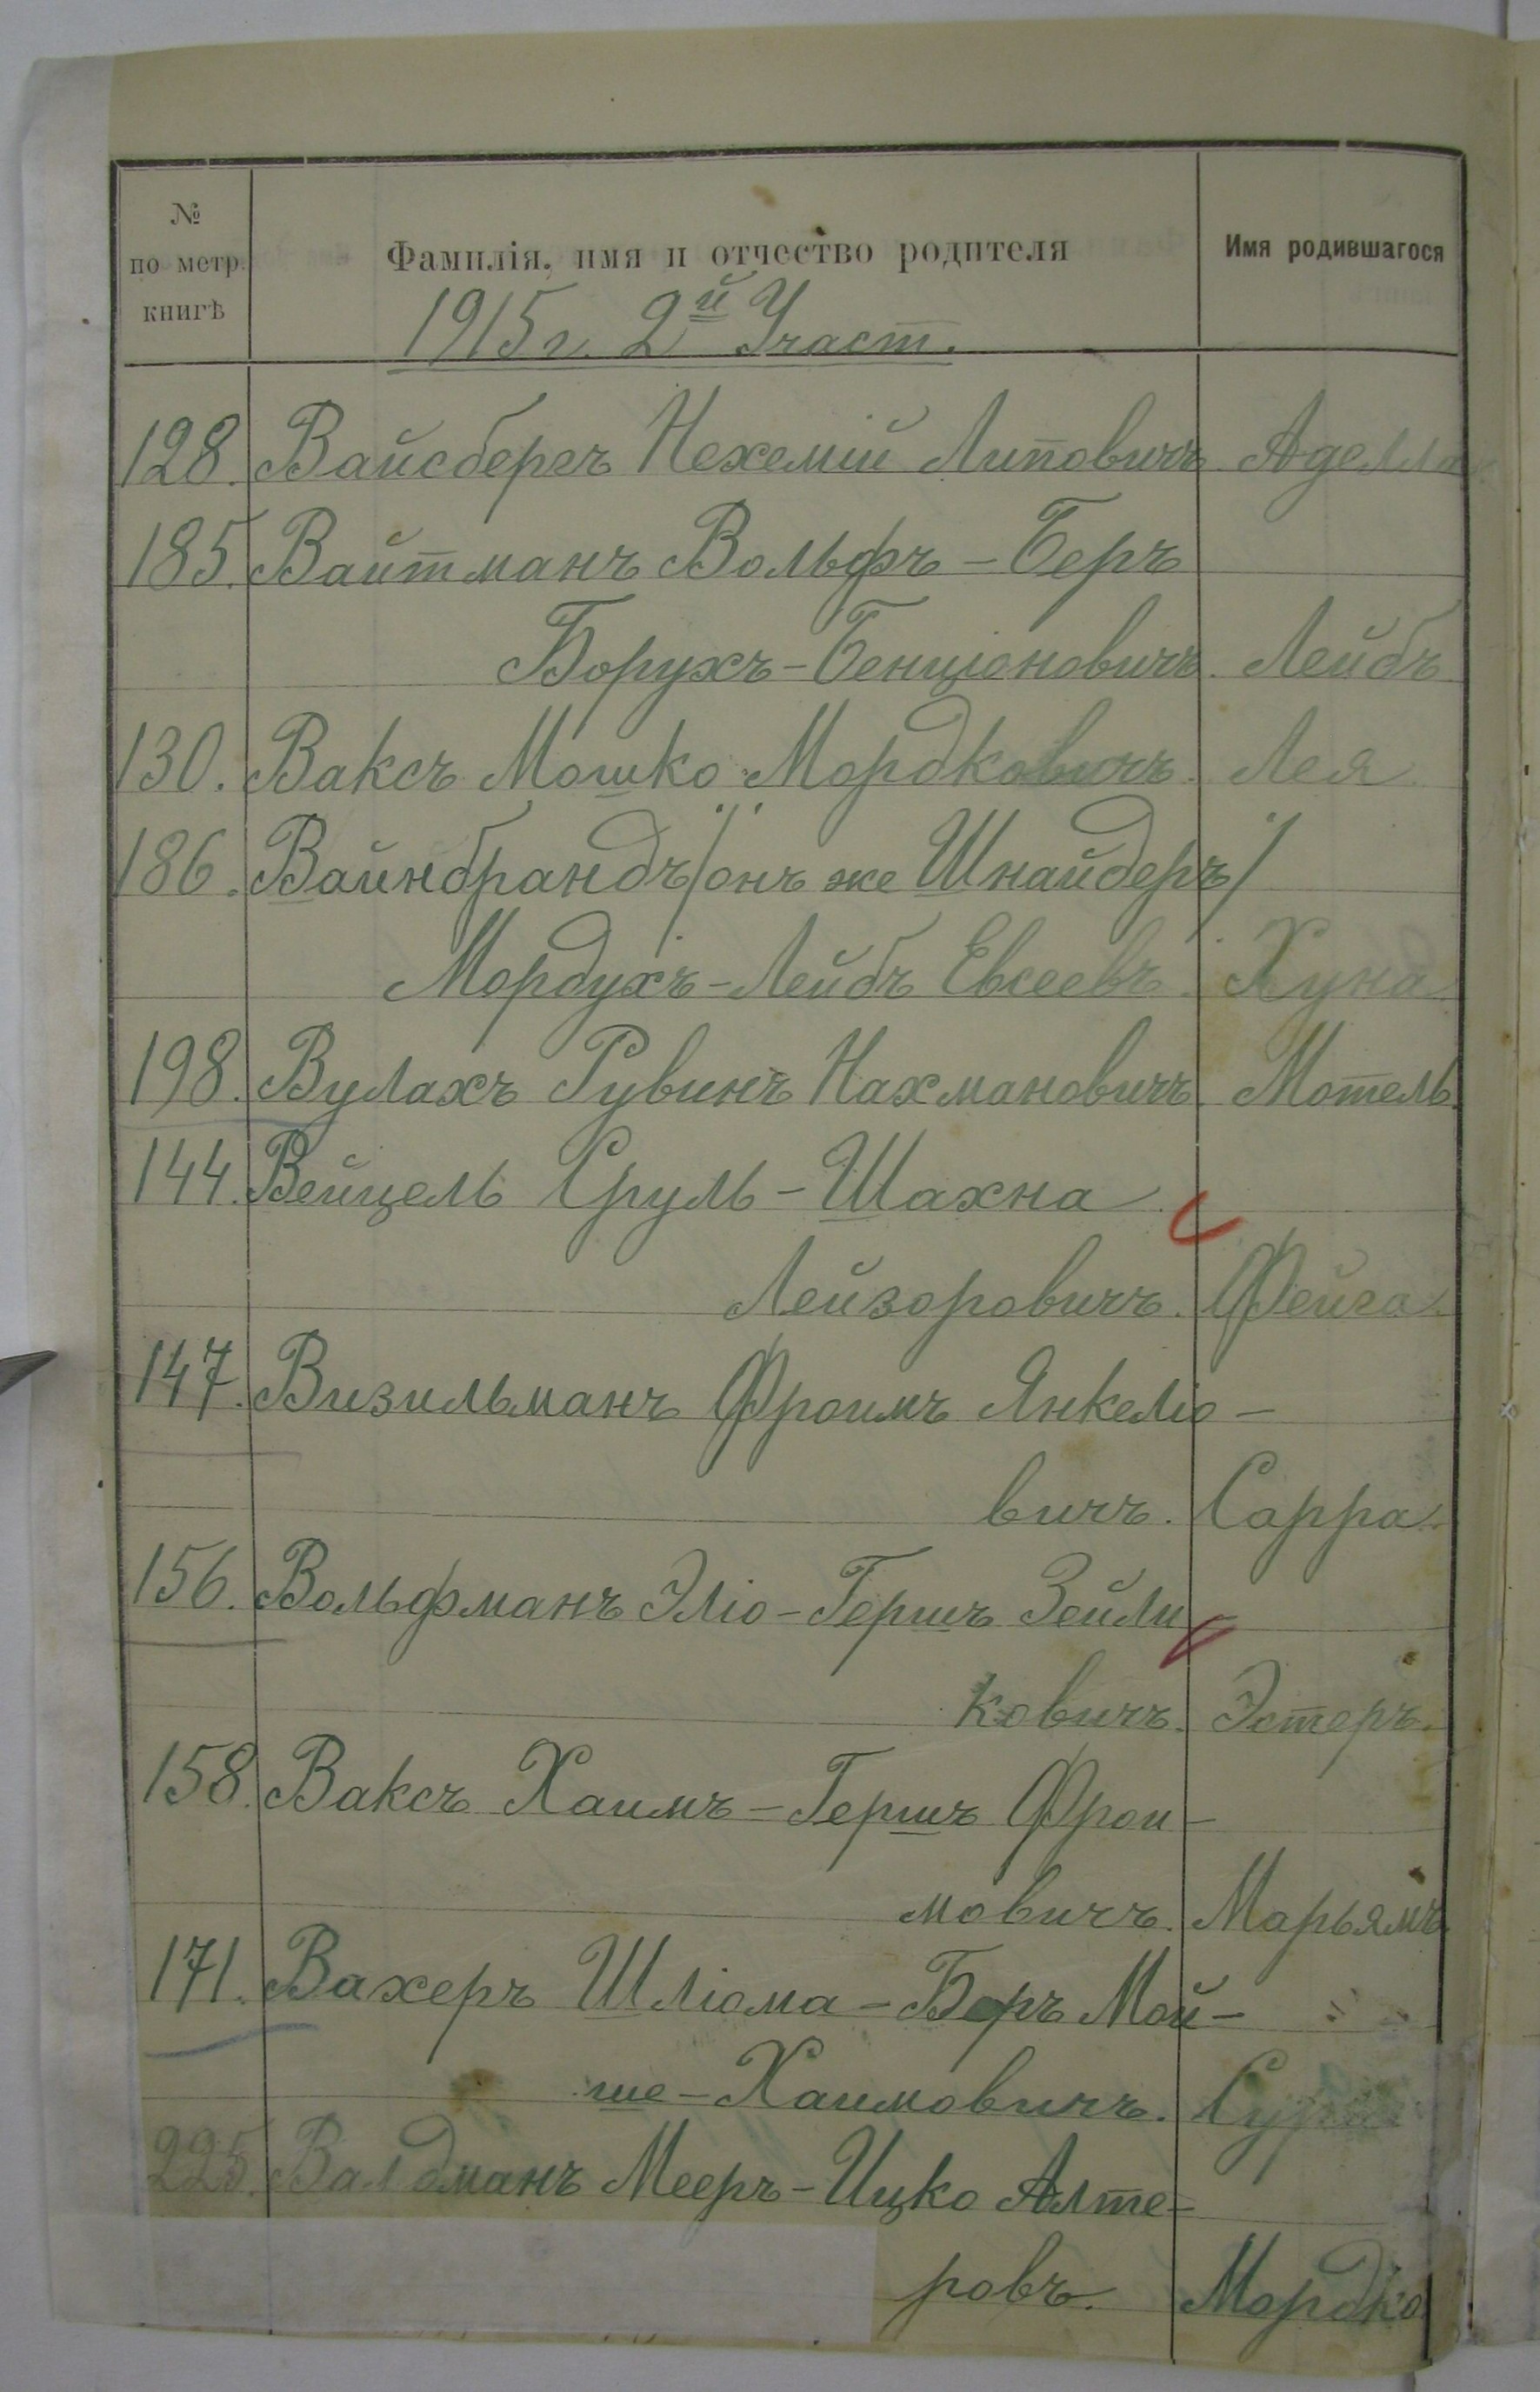 № по метр. книгѣ Фамилія, имя и отчество родителя Имя родившагося
1915 г. 2й Участ.
128. Вайсбергъ Нехемій Липовичъ. Аделла
185. Вайтманъ Вольфъ-Беръ
Борухъ-Бенціоновичъ. Лейбъ
130. Ваксъ Мошко Мордковичъ. Лея
186. Вайнбрандъ /онъ же Шнайдеръ/
Мордухъ-Лейбъ Евсеевъ. Хуна
198. Вулахъ Рувинъ Нахмановичъ. Мотель.
144. Вейцель Сруль-Шахна
Лейзоровичъ. Фейга.
147. Визильманъ Фроимъ Янкеліо-
вичъ. Сарра.
156. Вольфманъ Эліо-Гершъ Зейли-
ковичъ. Эстеръ.
158. Ваксъ Хаимъ-Гершъ Фрои-
мовичъ. Марьямъ.
171. Вахеръ Шліома-Беръ Мой-
ше-Хаимовичъ. Сура
225. Валдманъ Мееръ-Ицко Алте-
ровъ. Мордко